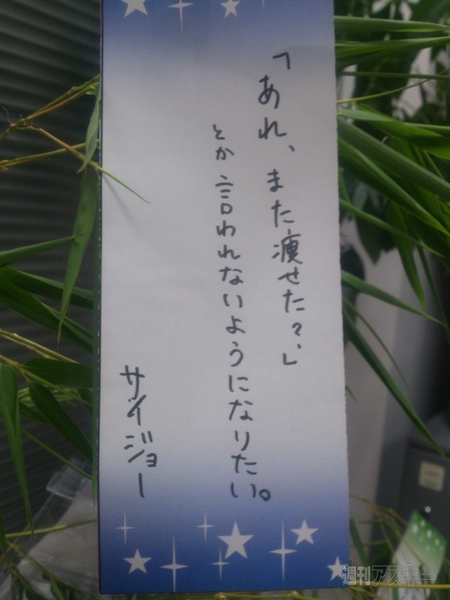 「あれ、また痩せた?」
とか言われないようになりたい。
サイジョー
週刊アスキー